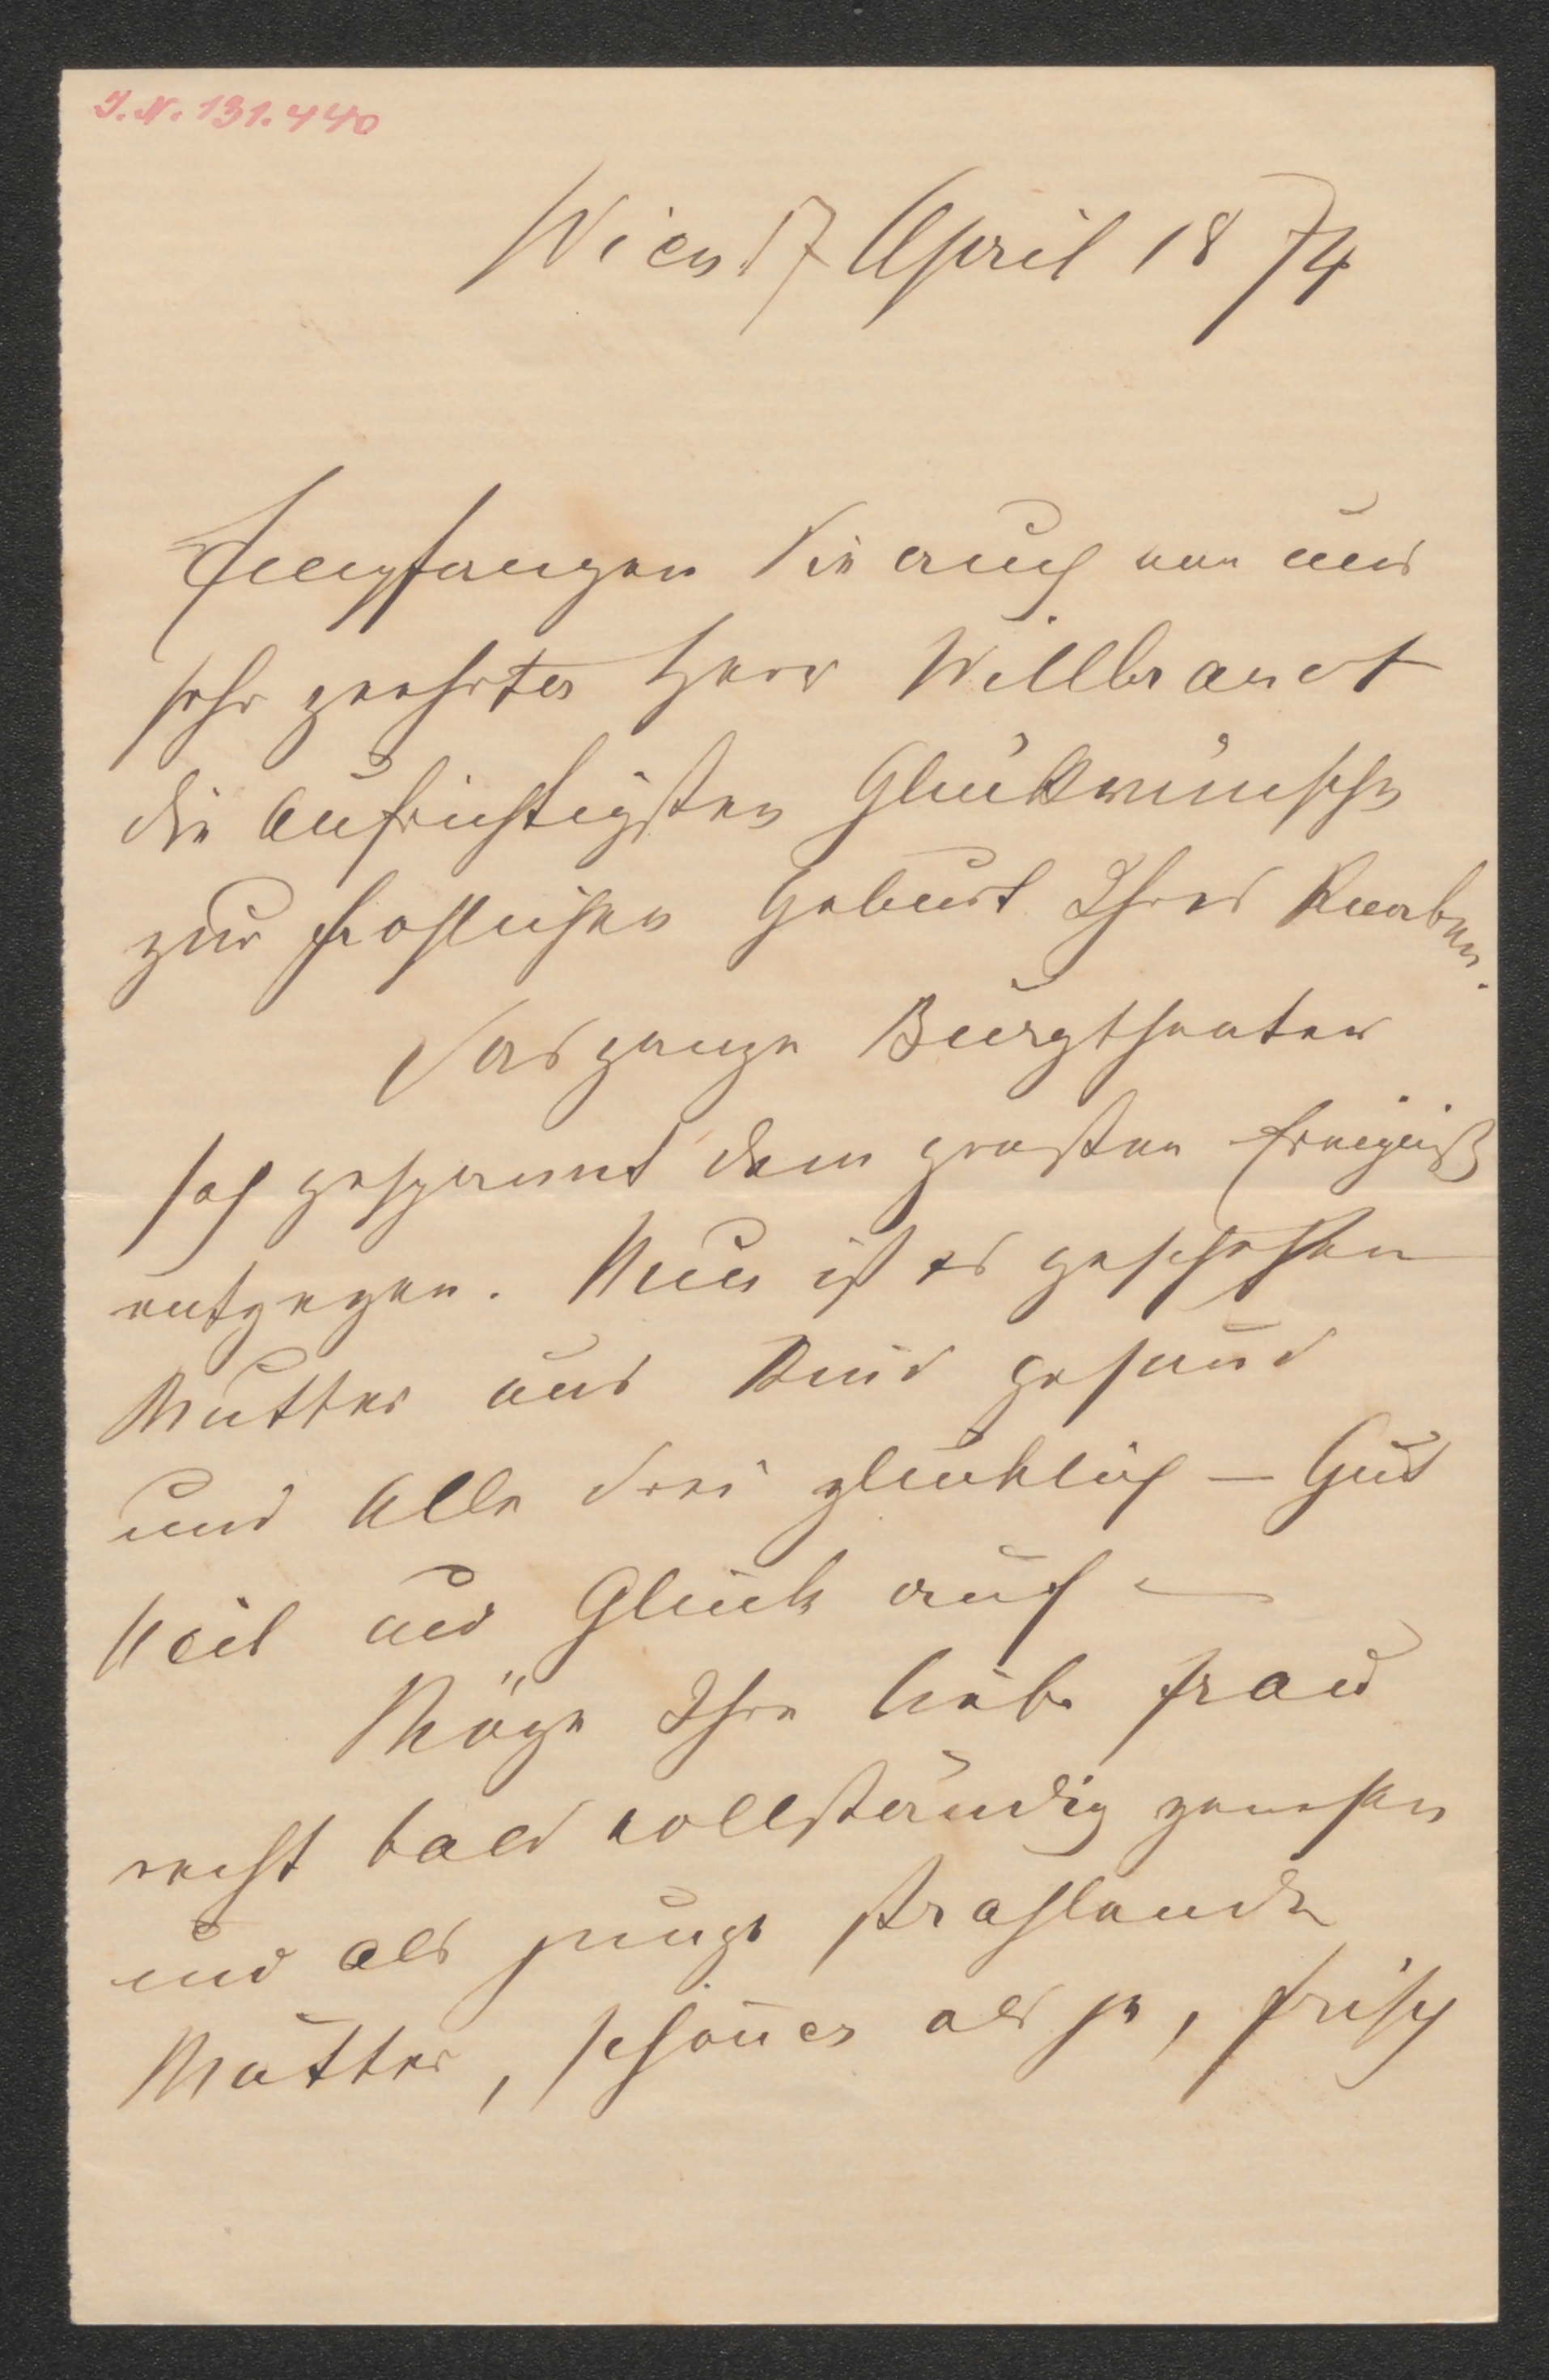 I.N. 131.440
Wien 17 April 1874
Empfangen Sie auch von uns
sehr geehrter Herr Willbrandt
die Aufrichtigsten Glückwünsche
zur frohlichen Geburt Ihres Knaben.
Das ganze Burgtheater
sah gespannt dem großen Ereigniß
entgegen. Nun ist es geschehen
Mutter und Kind gesund
und Alle drei glücklich – Gut
Heil und Glück auf –
Möge Ihre liebe Frau
recht bald vollständig genesen
und als junge strahlende
Mutter, schöner als je, frisch